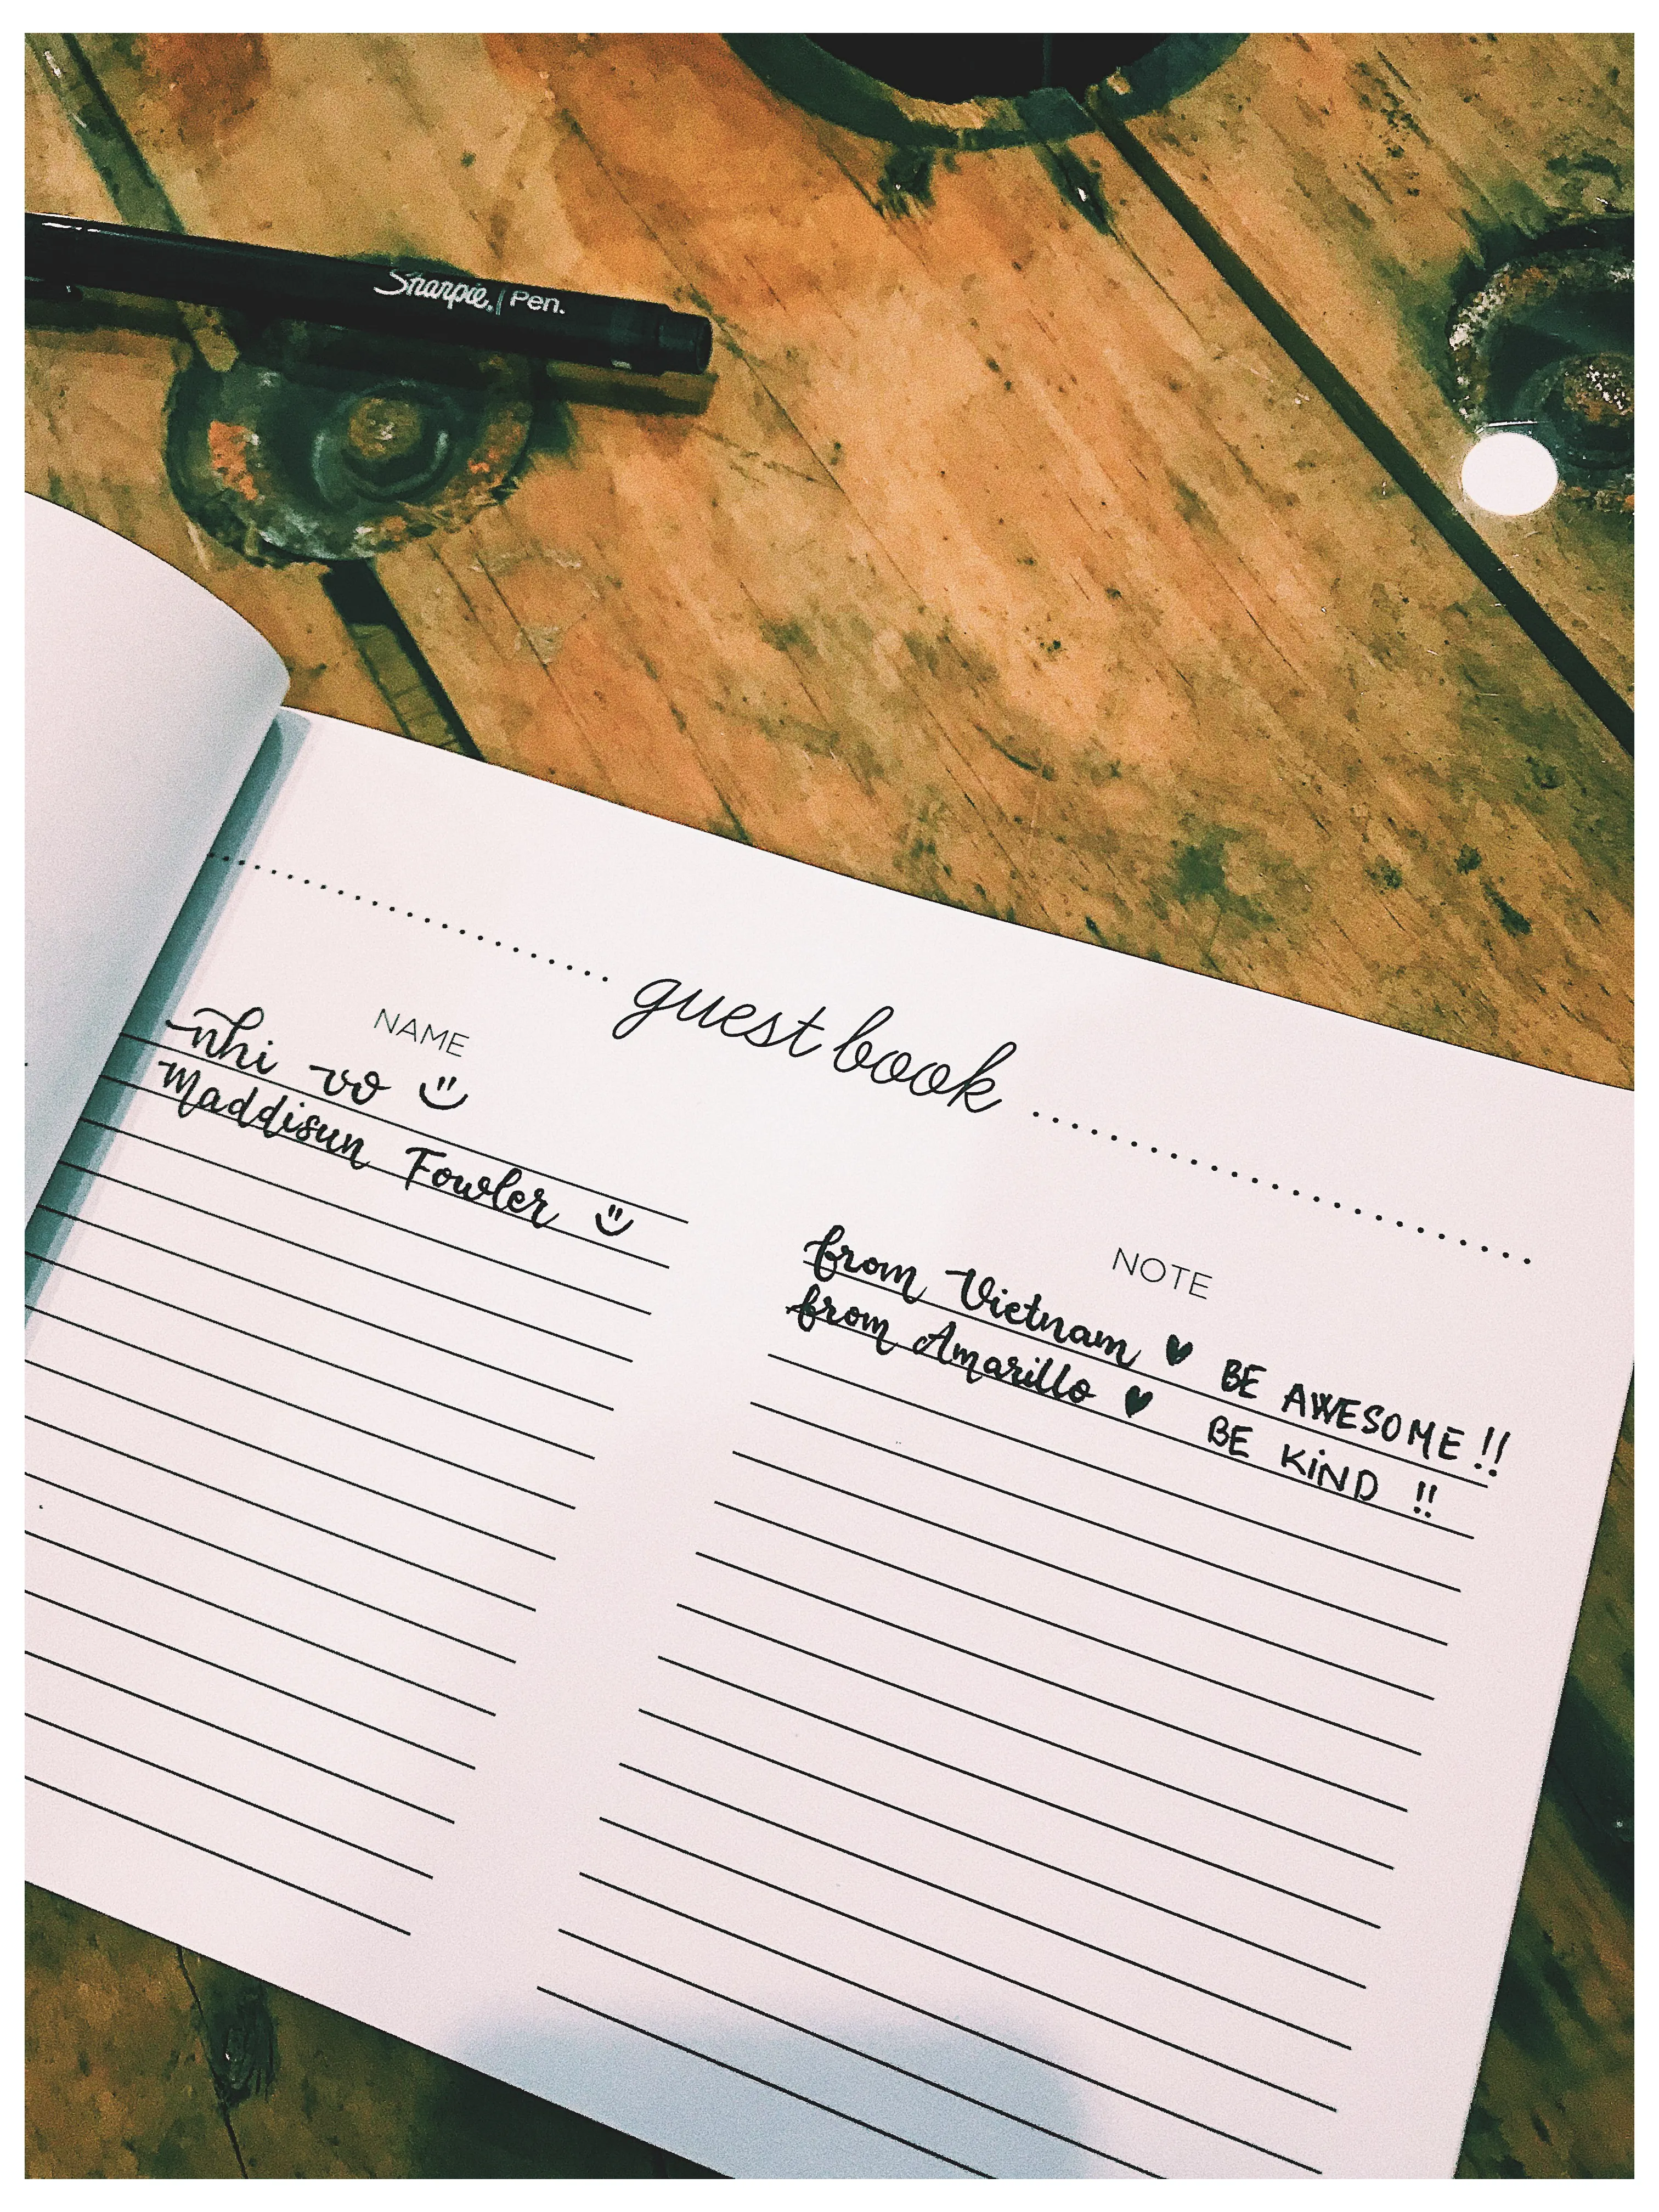 Sharpie. | Pen.
guest book
NAME
NOTE
nhi vo
from Vietnam ♥ BE AWESOME!!
Maddisun Fowler
from Amarillo ♥ BE KiND !!